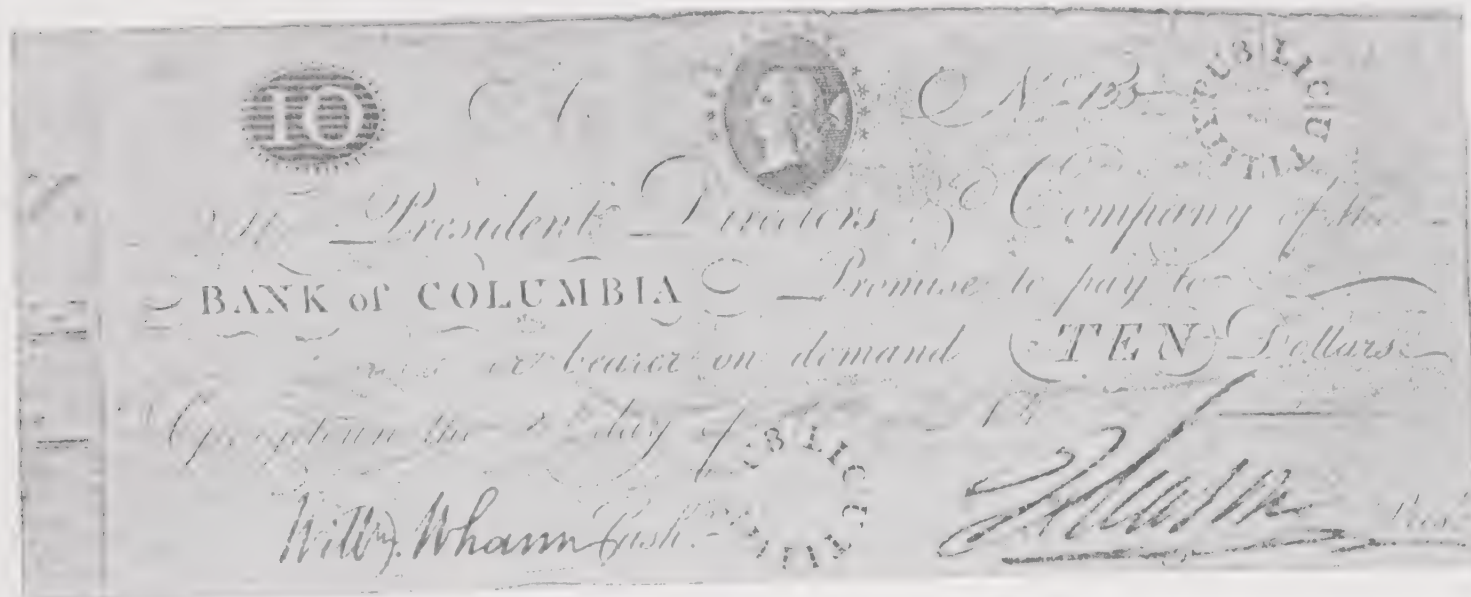 10 A. No 133 PUBLIC UTILITY
The President Directors & Company of the
BANK of COLUMBIA Promise to pay to
or bearer on demand TEN Dollars
Georgetown the day of 18
PUBLIC UTILITY
Willm. Whann Cash. J Mason Pres